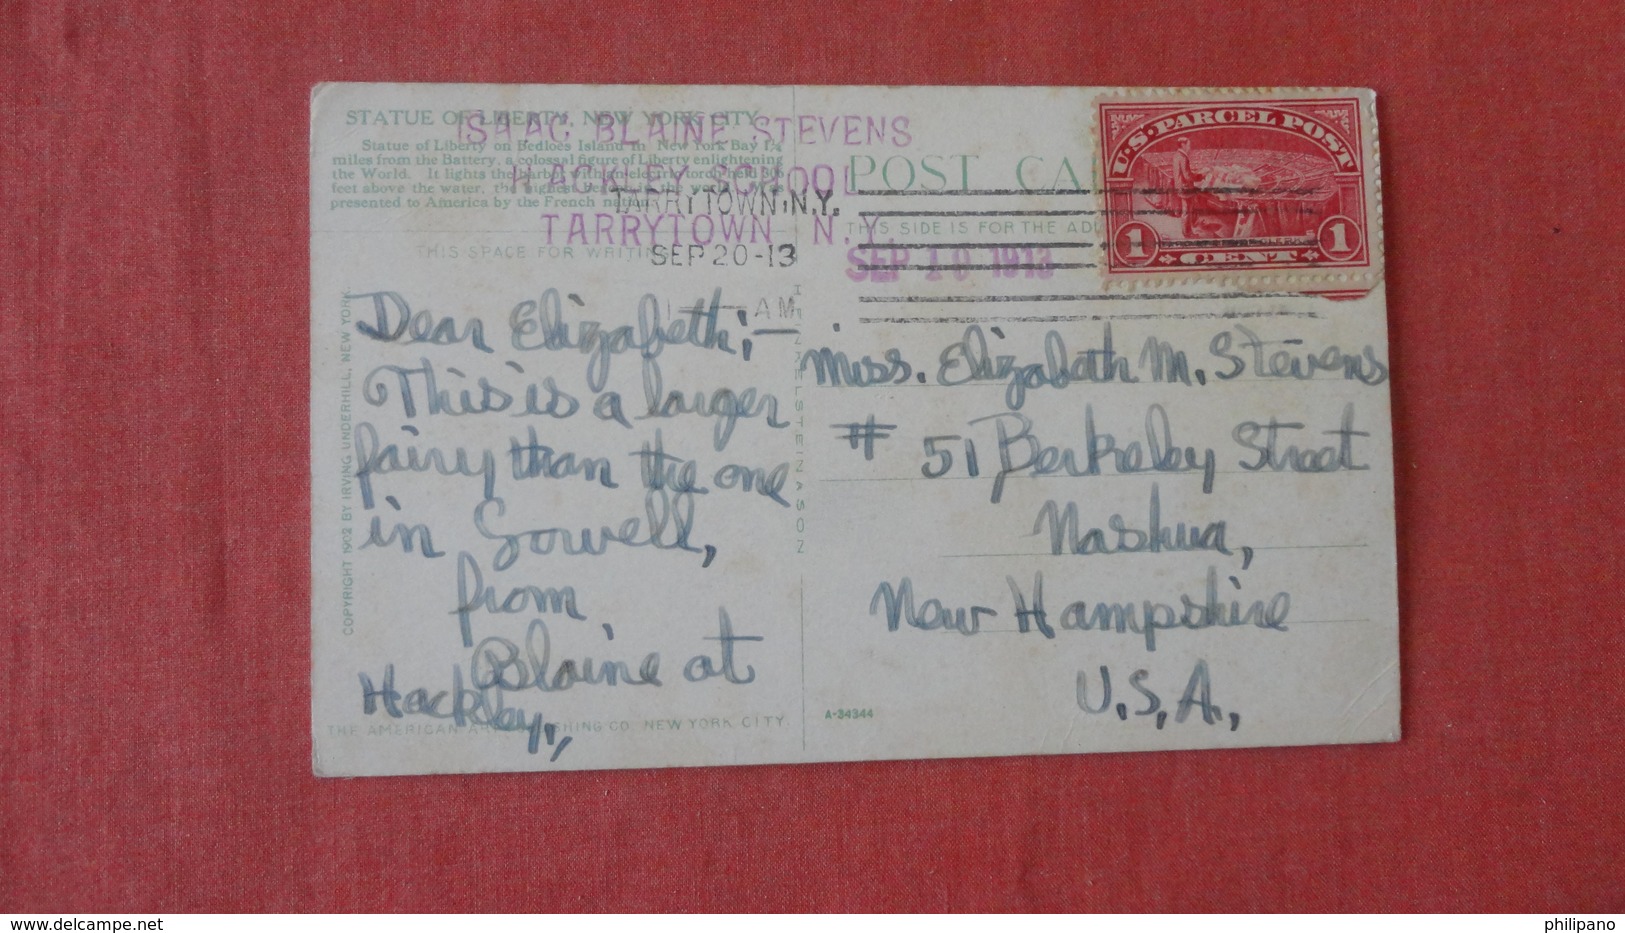 STATUE OF LIBERTY, NEW YORK CITY
Statue of Liberty on Bedloes Island in New York Bay 1¾
miles from the Battery, a colossal figure of Liberty enlightening
the World. It lights the harbor with an electric torch held 306
feet above the water, the highest in the world. Was
presented to America by the French nation.
ISAAC BLAINE STEVENS
HACKLEY SCHOOL
TARRYTOWN N.Y.
SEP 19 1913
TARRYTOWN, N.Y.
SEP 20-13
AM
POST CA
THIS SIDE IS FOR THE AD
THIS SPACE FOR WRITIN
U.S. PARCEL POST
1 CENT 1
Dear Elizabeth;—
This is a larger
fairy than the one
in Lowell,
from
Blaine at
Hackley.,
Miss. Elizabeth M. Stevens
# 51 Berkeley Street
Nashua,
New Hampshire
U.S.A.,
COPYRIGHT 1902 BY IRVING UNDERHILL, NEW YORK.
H. FINKELSTEIN & SON
THE AMERICAN ART PUBLISHING CO. NEW YORK CITY.
A-34344
www.delcampe.net
philipano